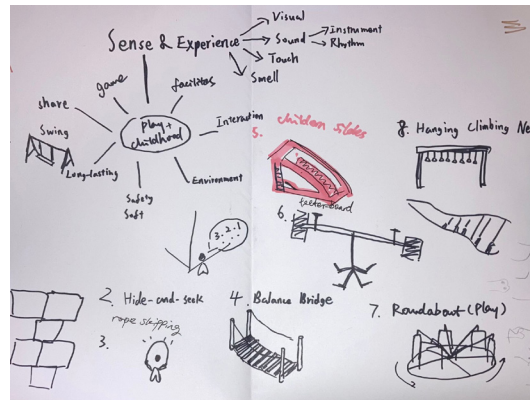 Sense & Experience
Visual
Sound
Instrument
Rhythm
Touch
Smell
game
facilites
share
play+
childhood
Interaction
Swing
Long-lasting
Safety
Soft
Environment
5. children slides
8. Hanging Climbing Ne
teeterboard
6.
3.2.1
2. Hide-and-seek
rope skipping
3.
4. Balance Bridge
7. Roundabout (Play)